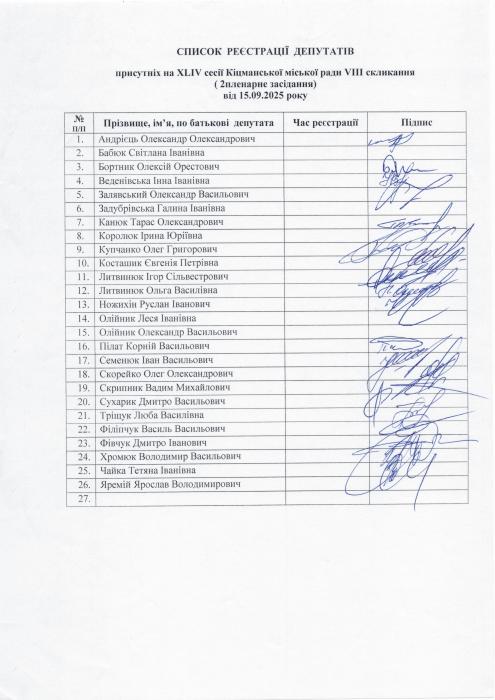 СПИСОК РЕЄСТРАЦІЇ ДЕПУТАТІВ
присутніх на XLIV сесії Кіцманської міської ради VIII скликання
( 2пленарне засідання)
від 15.09.2025 року
№ п/п Прізвище, ім’я, по батькові депутата Час реєстрації Підпис
1. Андрієць Олександр Олександрович
2. Бабюк Світлана Іванівна
3. Бортник Олексій Орестович
4. Веденівська Інна Іванівна
5. Залявський Олександр Васильович
6. Задубрівська Галина Іванівна
7. Канюк Тарас Олександрович
8. Королюк Ірина Юріївна
9. Купчанко Олег Григорович
10. Косташик Євгенія Петрівна
11. Литвинюк Ігор Сільвестрович
12. Литвинюк Ольга Василівна
13. Ножихін Руслан Іванович
14. Олійник Леся Іванівна
15. Олійник Олександр Васильович
16. Пілат Корній Васильович
17. Семенюк Іван Васильович
18. Скорейко Олег Олександрович
19. Скрипник Вадим Михайлович
20. Сухарик Дмитро Васильович
21. Тріщук Люба Василівна
22. Філіпчук Василь Васильович
23. Фівчук Дмитро Іванович
24. Хромюк Володимир Васильович
25. Чайка Тетяна Іванівна
26. Яремій Ярослав Володимирович
27.